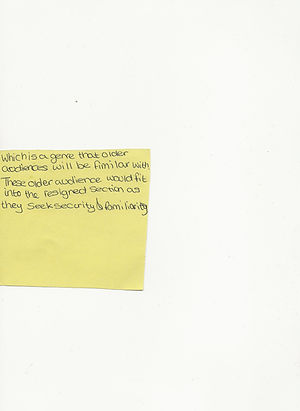 Which is a genre that older
audiences will be fimilar with
These older audience would fit
into the resigned section as
they seek security & familiarity